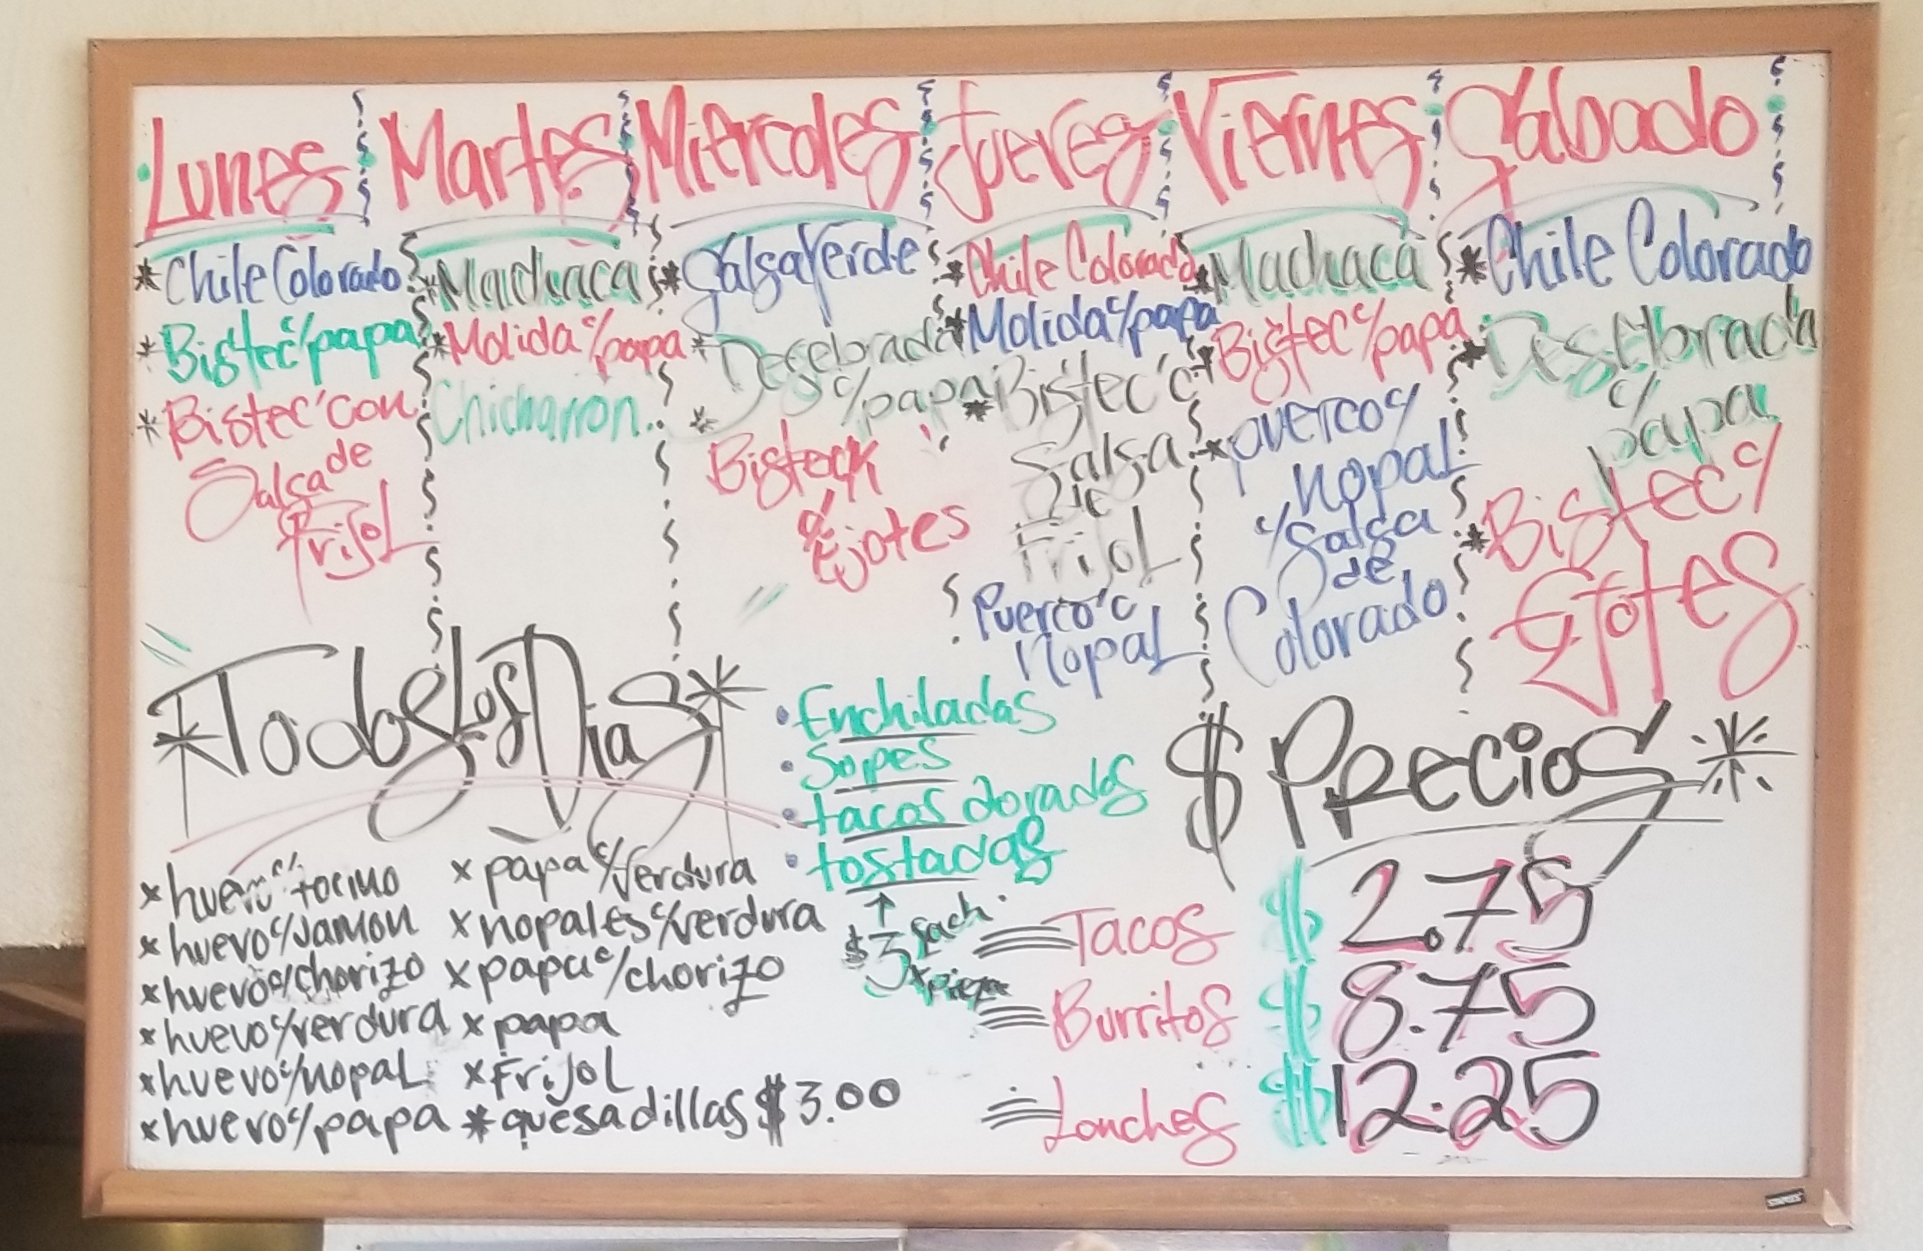 Lunes
* Chile Colorado
* Bistec c/papa
* Bistec con
Salsa de
Frijol
Martes
* Machaca
* Molida c/papa
Chicharron
Miercoles
* Salsa Verde
* Desebrada
c/papa
* Bisteck
c/
Ejotes
Jueves
* Chile Colorado
* Molida c/papa
* Bistec c
Salsa
De
Frijol
Puerco c
Nopal
Viernes
* Machaca
* Bistec c/papa
* puerco c/
Nopal
c/Salsa
de
Colorado
Sabado
* Chile Colorado
* Desebrada
c/
papa
* Bistec c/
Ejotes
* Todos Los Dias *
x huevo c/tocino
x huevo c/Jamon
x huevo c/chorizo
x huevo c/verdura
x huevo c/nopal
x huevo c/papa
x papa c/verdura
x nopales c/verdura
x papa c/chorizo
x papa
x Frijol
* quesadillas $3.00
• Enchiladas
• Sopes
• tacos dorados
• tostadas
↑
$3 each
x pieza
$ Precios *
Tacos $ 2.75
Burritos $ 8.75
Lonches $ 12.25